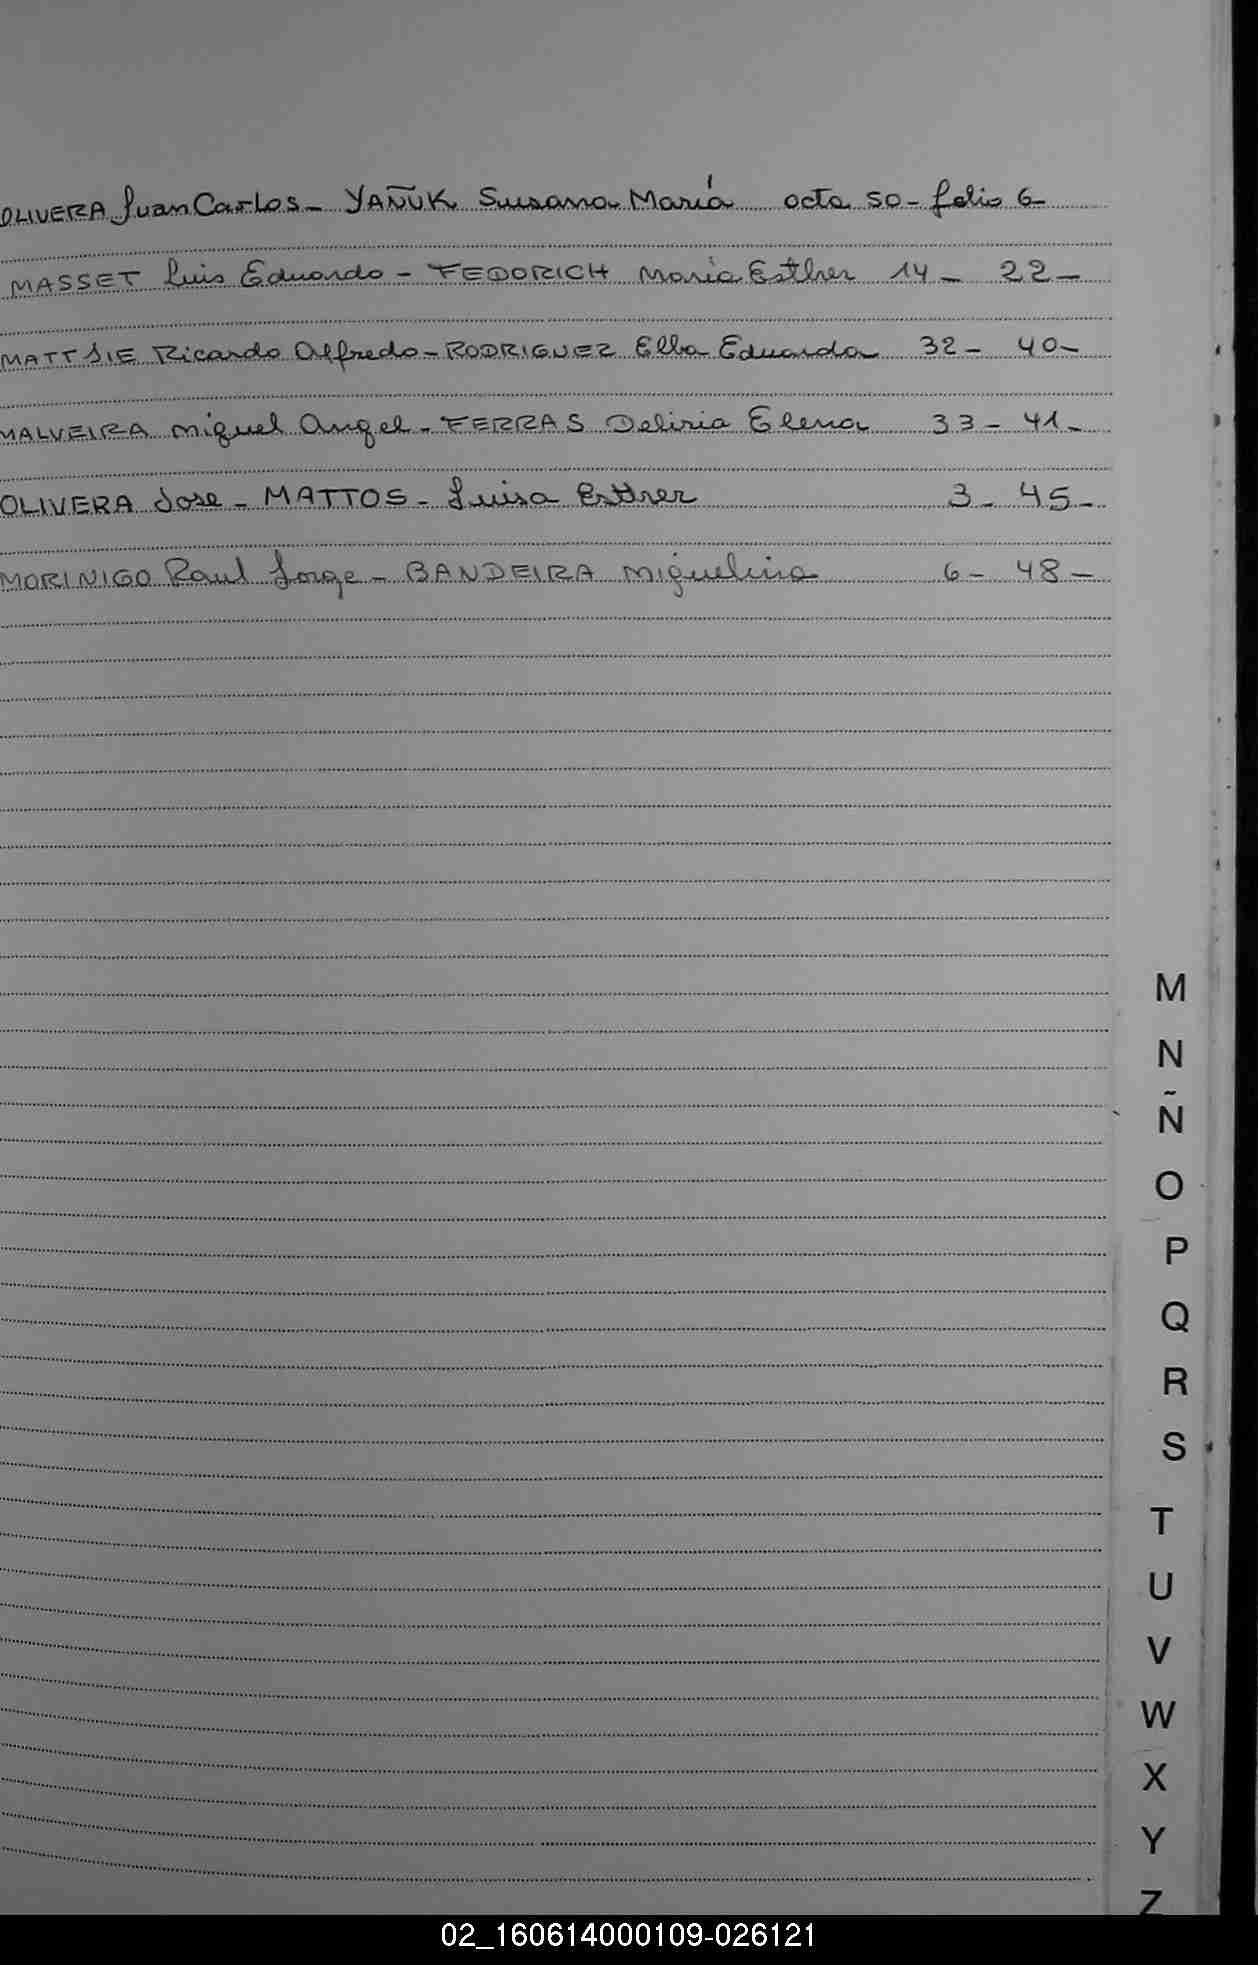 OLIVERA Juan Carlos - YAÑUK Susana María acta 50 - folio 6 -
MASSET Luis Eduardo - FEDORICH María Esther 14 - 22 -
MATTJIE Ricardo Alfredo - RODRIGUEZ Elba Eduarda 32 - 40 -
MALVEIRA Miguel Angel - FERRAS Deliria Elena 33 - 41 -
OLIVERA Jose - MATTOS - Luisa Esther 3 - 45 -
MORINIGO Raul Jorge - BANDEIRA Miguelina 6 - 48 -
M
N
Ñ
O
P
Q
R
S
T
U
V
W
X
Y
Z
02_160614000109-026121